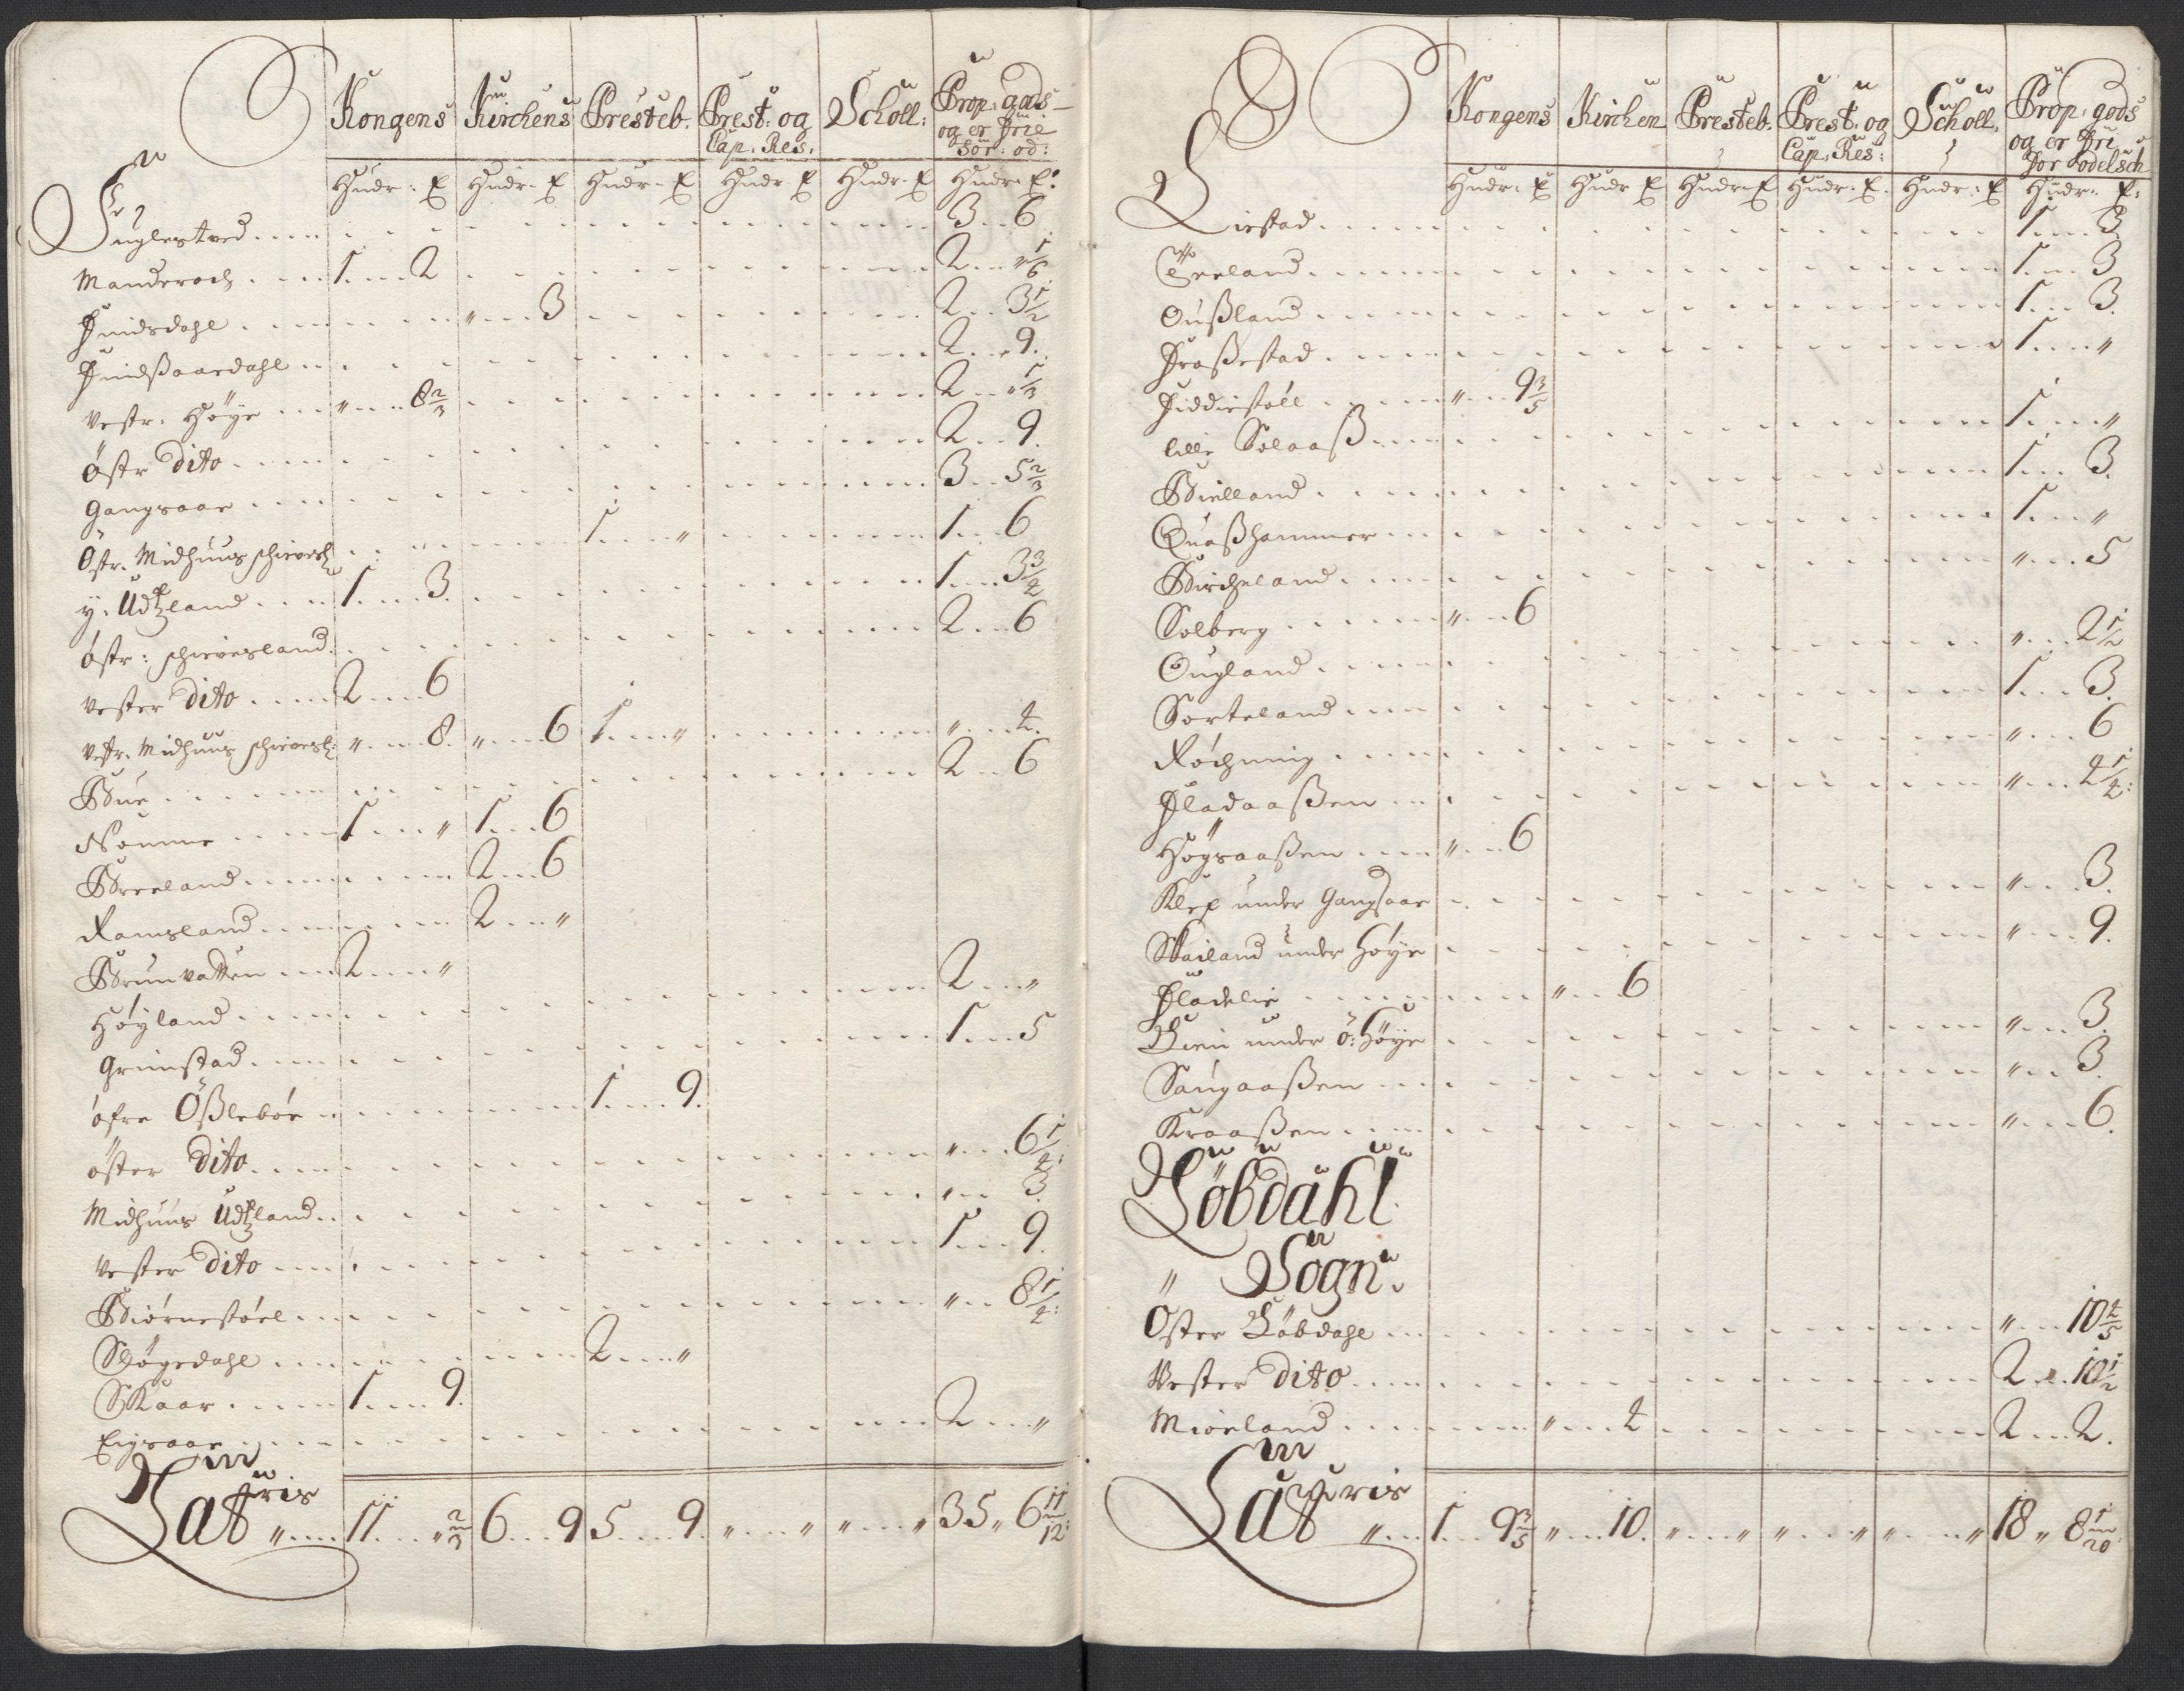 Kongens Kirchens Presteb. Prest: og Cap: Res: Scholl: Prop: gods og er frie for: od:
Hudr: E Hudr. E Hudr. E Hudr. E Hudr. E Hudr. E:
Fuglestved 3 6
Manderoch 1 2 2 " 1/6
Huidsdahl " 3 2 3 1/2
Huidßaardahl 2 9.
Vestr. Høye " 8 2/3 2 " 1/3
Östr Dito 2 9.
Gangsaar 3 5 2/3
Östr. Midhuus schievesl: 1 " 1 6
y. Udtzland 1 3. 1 3 3/4
östr: schievesland 2 6
Vester Dito 2 6
Vestr. Midhuus schievesl: " 8. " 6 1 " " 4.
Bue 2 6
Nomme 1 " 1 6
Breeland 2 6
Ramsland 2 "
Brunvatten 2 "
Høyland 2 "
Grimstad 1 5
öfre Ößleböe 1 9.
öster Dito " 6 1/4:
Midhuus Udtzland " 3.
Vester Dito 1 9.
Biørnestøel " 8 1/4:
Skøgedahl 2 "
Skaar 1 9.
Eigsaar 2 "
Latteris " 11 " 2/3 6 9 5 9. " " " " 35 " 6 11/12:
Kongens Kirchen Presteb. Prest: og Cap: Res: Scholl. Prop: gods og er fri for odelsch
Hudr: E Hudr E Hudr. E Hudr. E. Hudr: E Hudr: E:
Liestad 1 3.
Eeeland 1 3
Oußland 1 3.
Fraßestad 1 "
Fiddiestøll " 9 3/5
lille Solaaß 1 "
Bielland 1 3.
Quaßhammer 1 "
Bircheland " 5
Solberg " 6
Ougland " 2 1/2
Sorteland 1 3.
Røchning " 6
Fladaaßen " 4 1/4:
Høgaaßen " 6
Klep under Gangsaar " 3.
Skailand under Høye " 9.
Fladelie " 6
Lien under ö: Høye " 3.
Saugaaßen " 3.
Kraaßen " 6.
Löbdahl
" Sogn.
Öster Löbdahl " 10 4/5
Vester Dito 2 10 1/2
Mioeland " 4 2 2.
Latteris " 1 9 3/5 " 10. " " " " " " 18 " 8 1/20